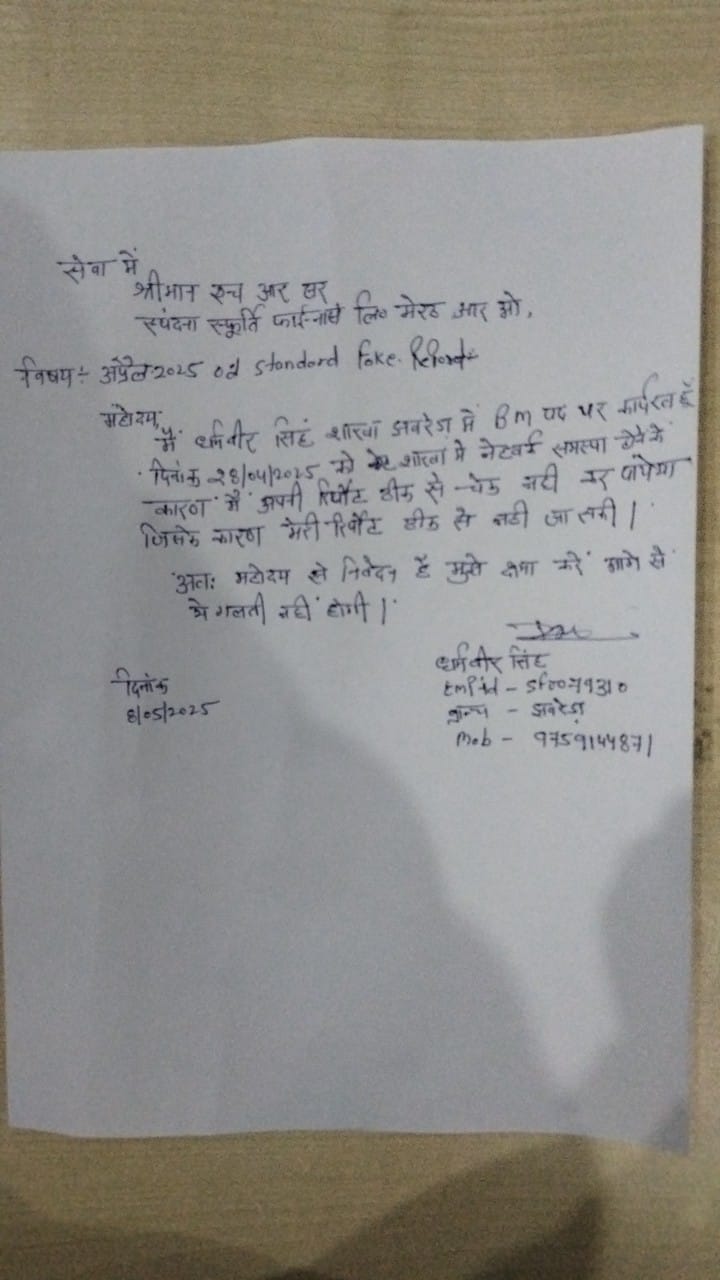 सेवा में
श्रीमान एच आर सर
स्पंदना स्फूर्ति फाईनांस लि० मेरठ आर ओ,
विषय:- अप्रैल 2025 od standard Fake. Report:-
महोदय,
मैं धर्मवीर सिंह शाखा झबरेडा में BM पद पर कार्यरत हूँ
दिनांक 28/04/2025 को शाखा मे नेटवर्क समस्या होने के
कारण मैं अपनी रिर्पोट ठीक से चेक नही कर पाया
जिसके कारण मेरी रिर्पोट ठीक से नही जा सकी।
अतः महोदय से निवेदन है मुझे क्षमा करें आगे से
ये गलती नहीं होगी।
धर्मवीर सिंह
दिनांक
8/05/2025
Emp id - Sf0079310
ब्रान्च - झबरेडा
Mob - 9759144871